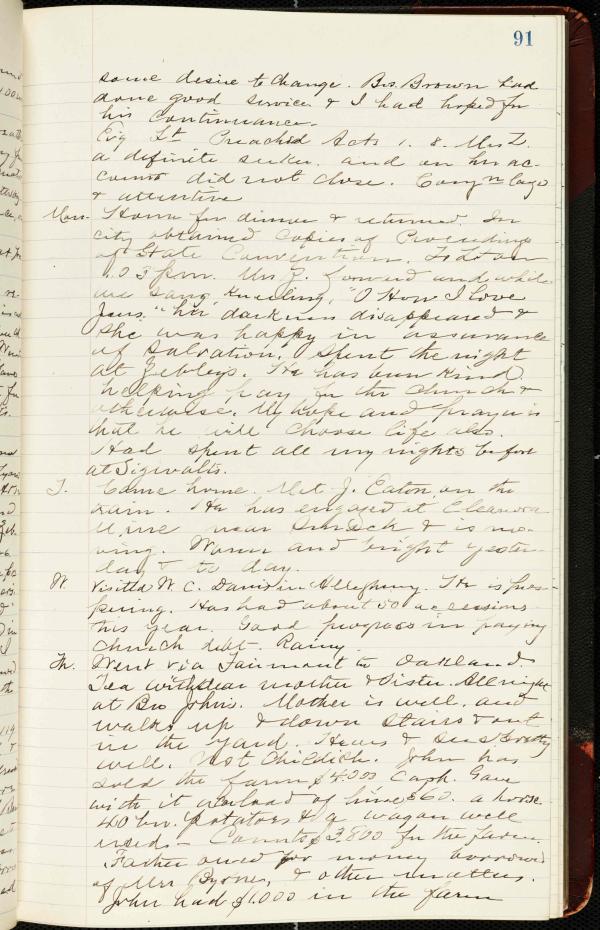 91
some desire to change. Bro. Brown had
done good service & I had hoped for
his continuance.
Preached Acts 1. 8. Mrs Z.
a definite seeker. and on his ac-
count did not close. Congn large
& attentive
Mon. Home for dinner & returned. In
city obtained copies of Proceedings
of State Convention.
1.03 pm. Mrs Z. forward and while
we sang, kneeling, "O How I love
Jesus" her darkness disappeared &
she was happy in assurance
of salvation. Spent the night
at Zebleys. He has been kind
helping pay for the church &
otherwise. My hope and prayer is
that he will choose life also.
Had spent all my nights before
at Sigwalts.
T. Came home. Met J. Eaton on the
train. He has engaged at Eleanora
Mine near & is mo-
ving. Warm and bright yester-
day & to day.
W. Visited W. C. Davis in Allegheny. He is pros-
pering. Has had about 50 accessions
this year. Good progress in paying
church debt. Rainy.
Th. Went via Fairmont to Oakland.
Tea with dear mother & Sister. All night
at Bro John's. Mother is well. and
walks up & down stairs & out
in the yard. Hears & sees pretty
well. Not childish. John has
sold the farm $4000 cash. Gave
with it a load of lime $60. a horse
40 bu. potatoes & a wagon well
used. - Counts $3,800 for the farm.
Father owed for money borrowed
of Mrs Byrnes, & other matters.
John had $1,000 in the farm